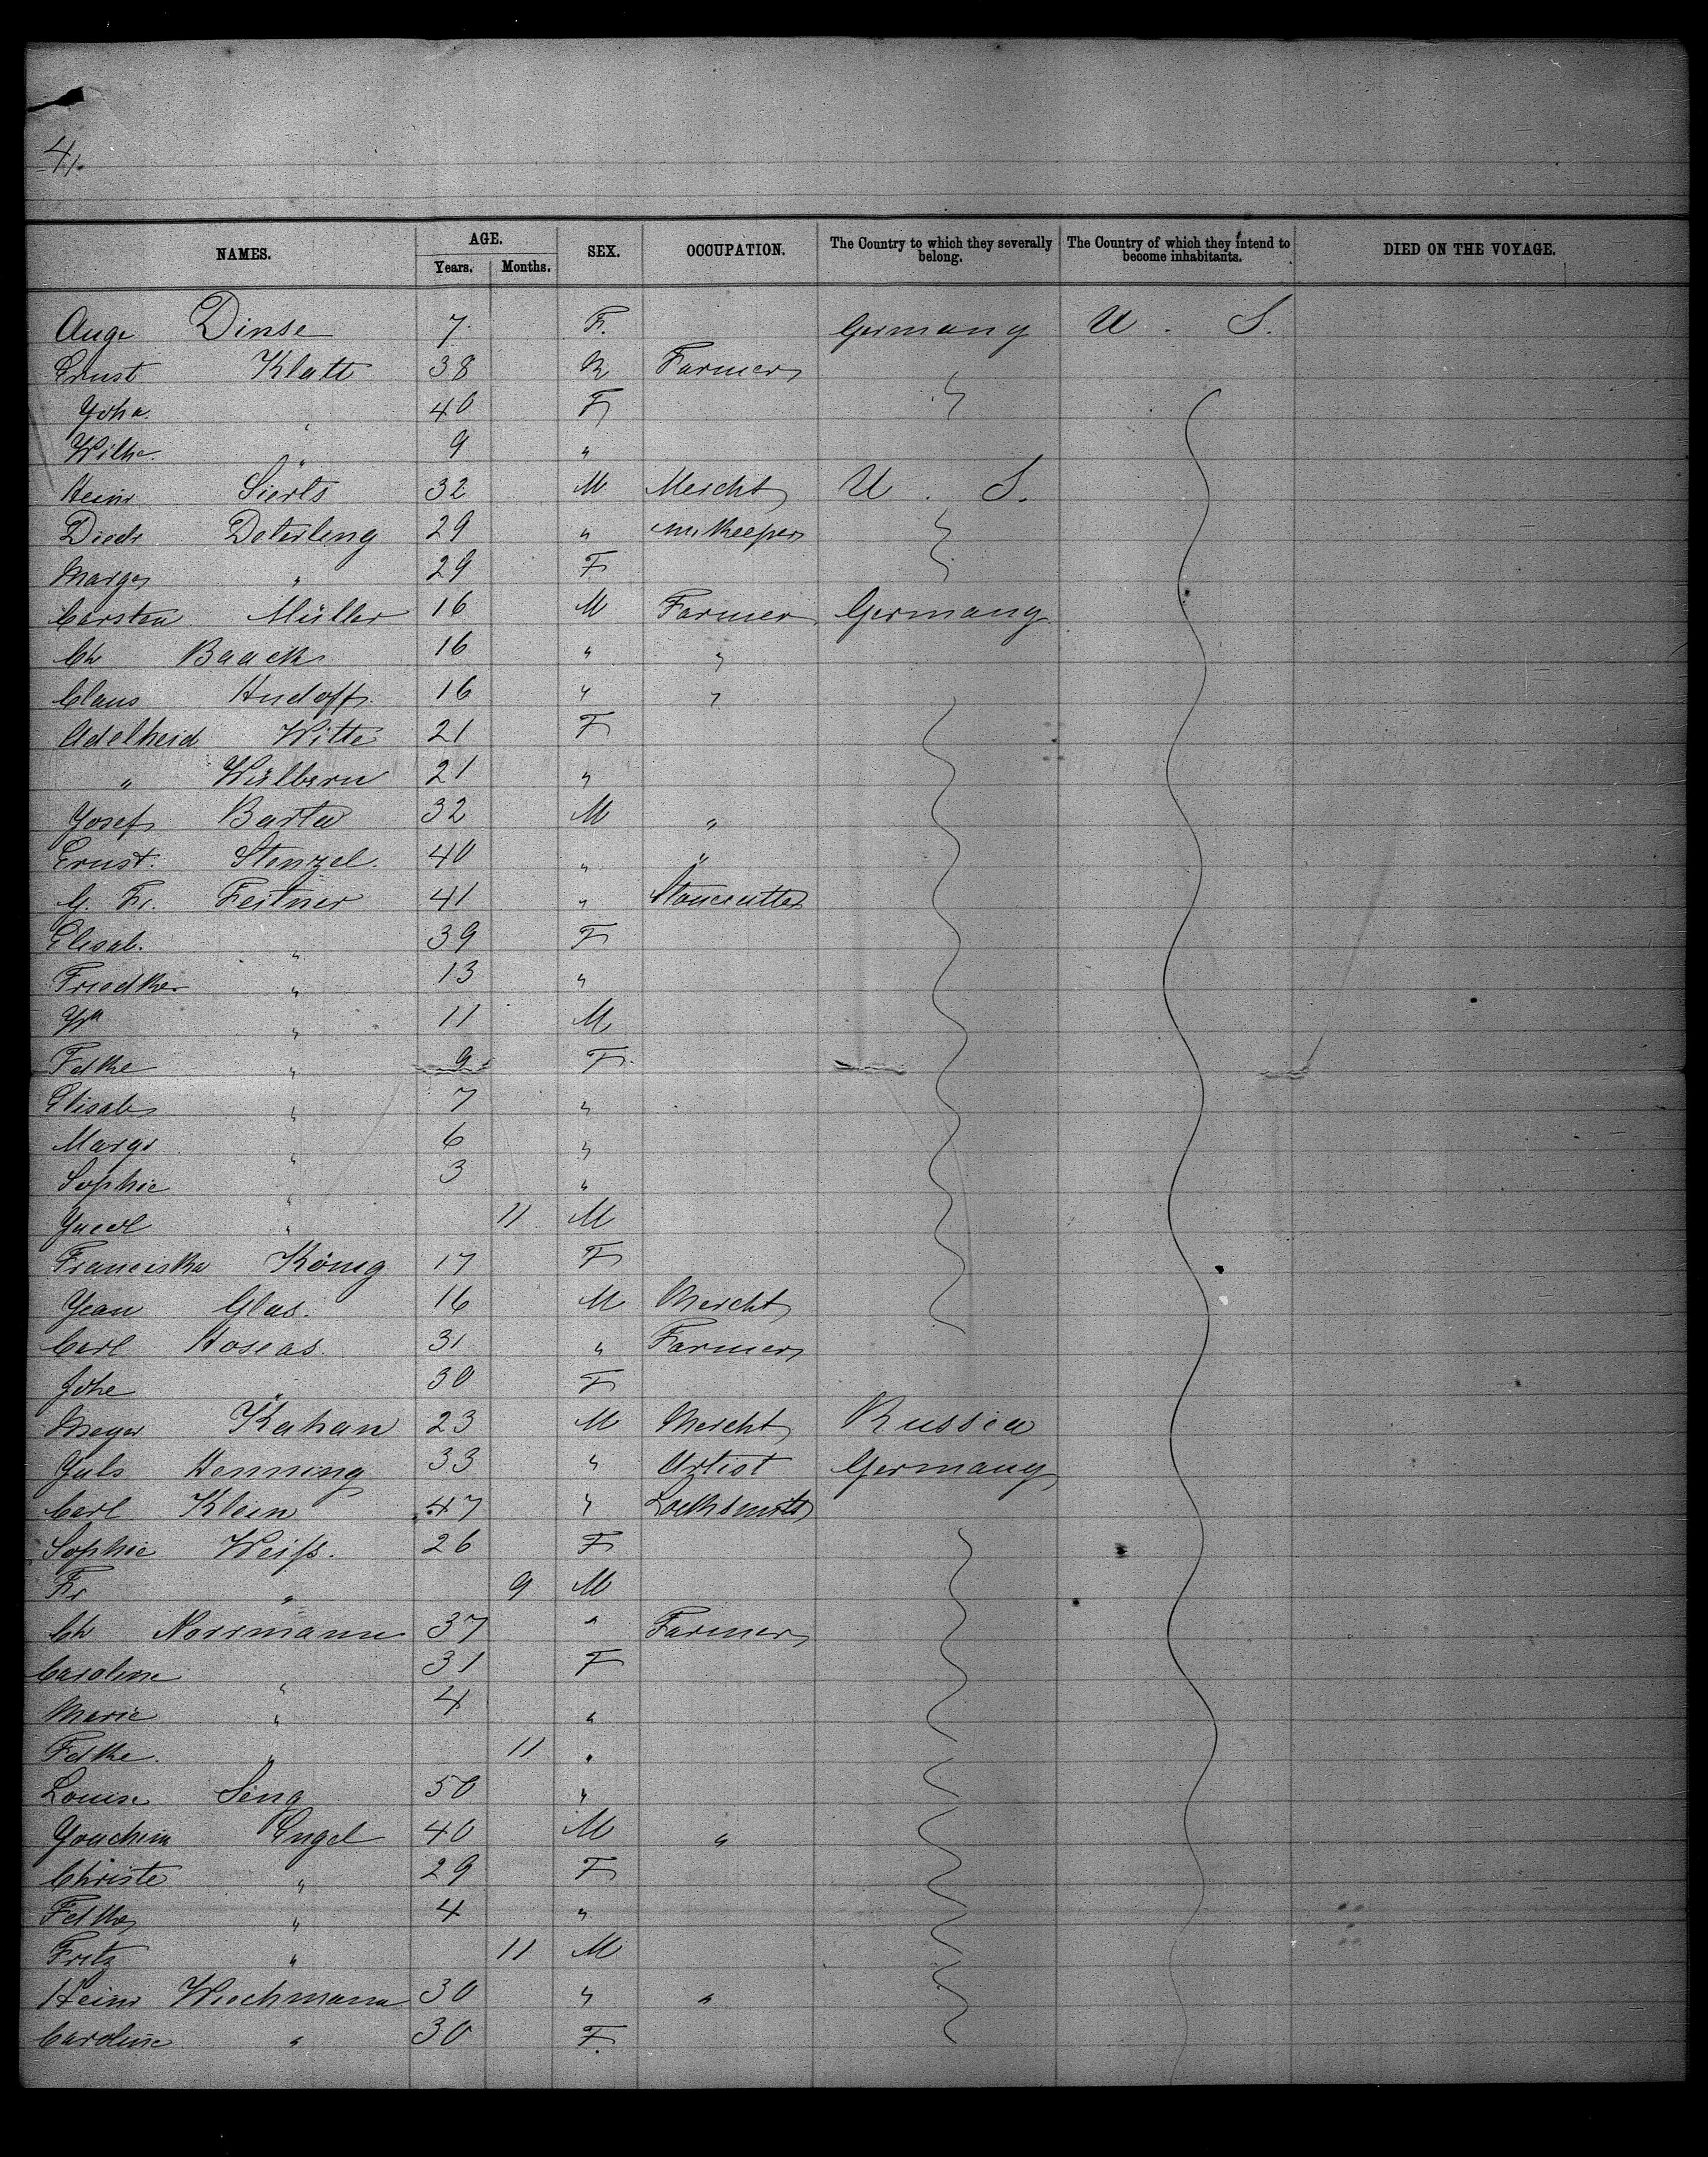 4.
NAMES. AGE. SEX. OCCUPATION. The Country to which they severally belong. The Country of which they intend to become inhabitants. DIED ON THE VOYAGE.
Years. Months.
Auge Dinse 7 F. Germany U. S.
Ernst Klatt 38 M Farmer
Joha. " 40 F
Wilhe. " 9 "
Heinr Sierts 32 M Mercht U. S.
Diedr Deterling 29 " Innkeeper
Marga " 29 F
Carsten Müller 16 M Farmer Germany
Ch Baack 16 " "
Claus Hudoff 16 " "
Adelheid Witte 21 F
" Wülbern 21 "
Josef Barta 32 M "
Ernst. Stenzel. 40 " "
G. Fr. Feitner 41 " Stonecutter
Elisab. " 39 F
Friedke " 13 "
" 11 M
Fdke " 9 F
Elisab " 7 "
Margr " 6 "
Sophie " 3 "
" 11 M
Franciska König 17 F
Jean Glas. 16 M Mercht
Carl Hoseas. 31 " Farmer
Johe " 30 F
Meyer Kahan 23 M Mercht Russia
Juls Henning 33 " Artist Germany
Carl Klein 47 " Locksmith
Sophie Weiß. 26 F
Fr " 9 M
Ch Norrmann 37 " Farmer
Caroline " 31 F
Marie " 4 "
Fdke. " 11 "
Louise Seng 50 "
Joachim Engel 40 M "
Christe " 29 F
Fdke " 4 "
Fritz " 11 M
Heinr Wiechmann 30 " "
Caroline " 30 F.